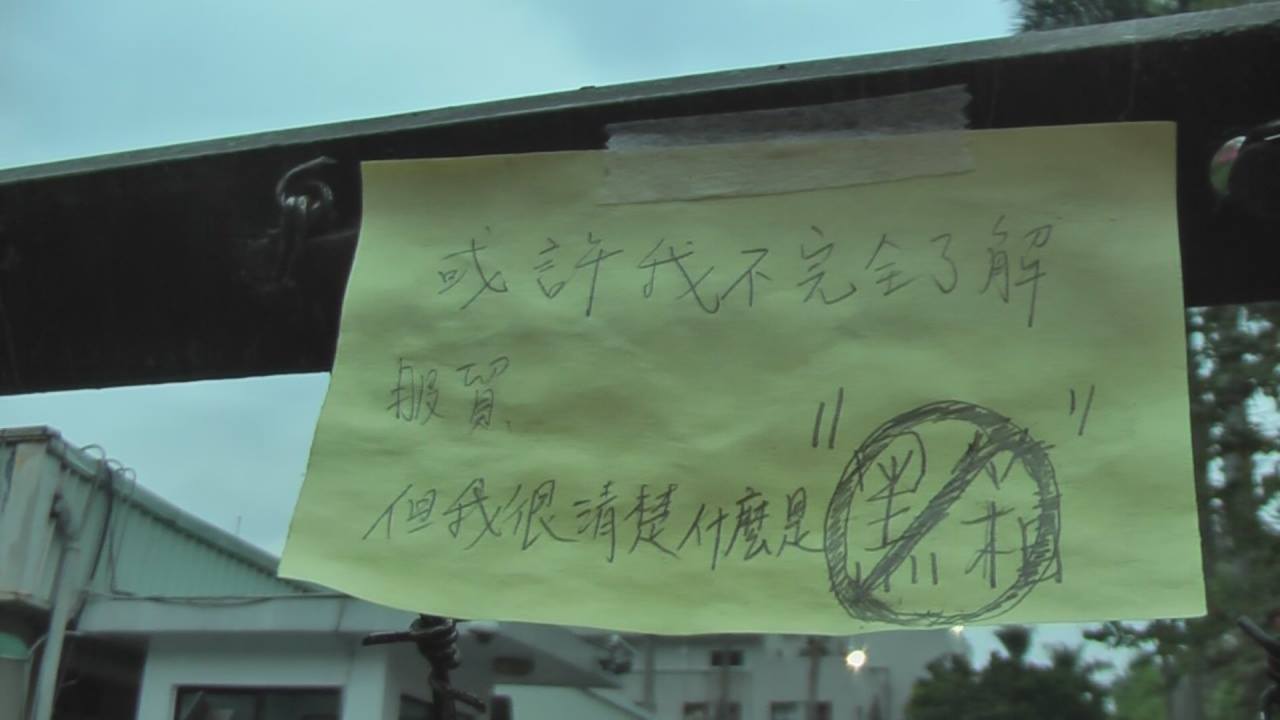 或許我不完全了解
服貿,
但我很清楚什麼是"黑箱"